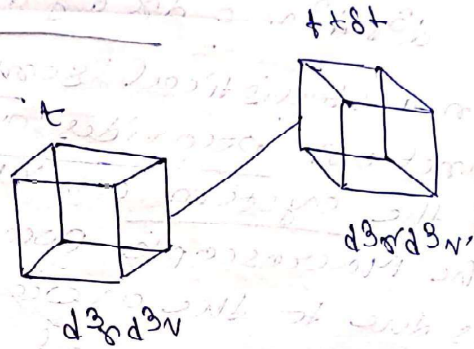 t+δt
t
d³r d³v'
d³r d³v